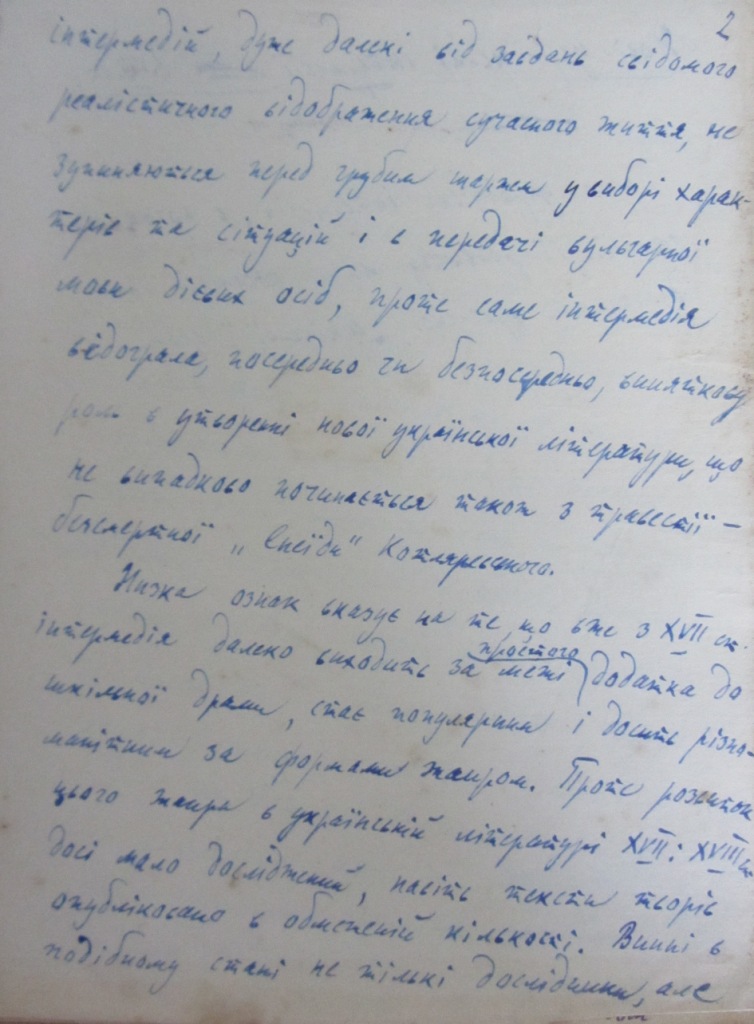 2
інтермедій, дуже далекі від завдань свідомого
реалістичного відображення сучасного життя, не
зупиняються перед грубим шаржем у виборі харак-
терів та ситуацій і в передачі вульгарної
мови дієвих осіб, проте саме інтермедія
відограла, посередньо чи безпосередньо, виняткову
роль в утворенні нової української літератури, що
не випадково починається також з травестії –
безсмертної „Енеїди" Котляревського.
Низка ознак вказує на те, що вже з XVII ст.
інтермедія далеко виходить за межі простого додатка до
шкільної драми, стає популярним і досить різно-
манітним за формами жанром. Проте розвиток
цього жанра в українській літературі XVII і XVIII ст.
досі мало досліджений, навіть тексти творів
опубліковано в обмеженій кількості. Винні в
подібному стані не тільки дослідники, але